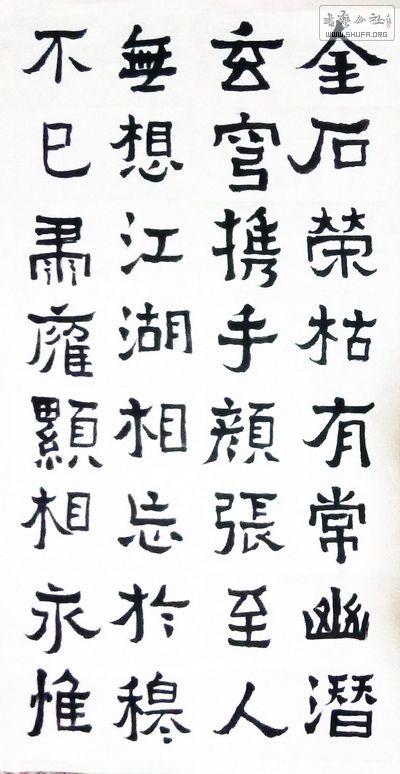 金石榮枯有常幽潛
玄穹携手顔張至人
無想江湖相忘於穆
不已肅廱顯相永惟
WWW.SHUFA.ORG